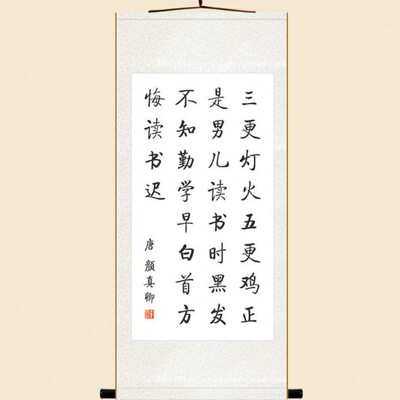 三更灯火五更鸡正
是男儿读书时黑发
不知勤学早白首方
悔读书迟
唐 颜真卿